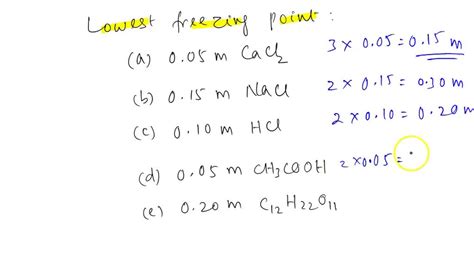 Lowest freezing point :
(a) 0.05 m CaCl₂ 3 × 0.05 = 0.15 m
(b) 0.15 m NaCl 2 × 0.15 = 0.30 m
(c) 0.10 m HCl 2 × 0.10 = 0.20 m
(d) 0.05 m CH₃COOH 2 × 0.05 =
(e) 0.20 m C₁₂H₂₂O₁₁